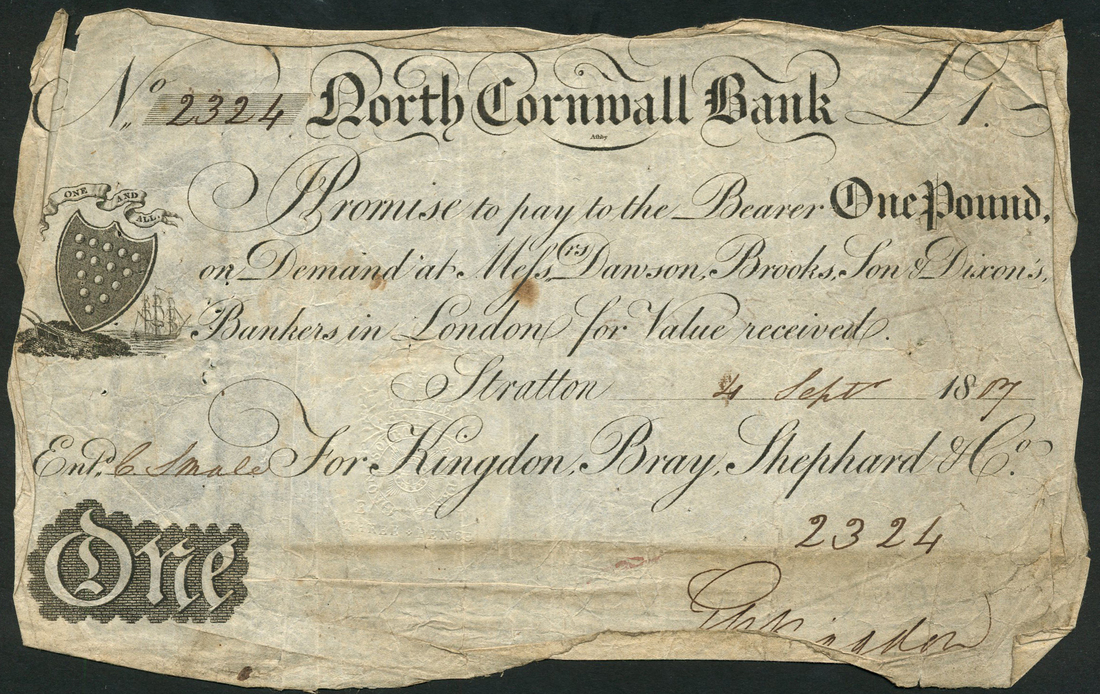 No 2324 North Cornwall Bank £1.
Ashby
ONE AND ALL
I Promise to pay to the Bearer One Pound,
on Demand at Messrs Dawson, Brooks, Son & Dixon's,
Bankers in London for Value received.
Stratton 4 Septr 1807
Entd. C Smale For Kingdon, Bray, Shephard & Co.
2324
One
Kingdon